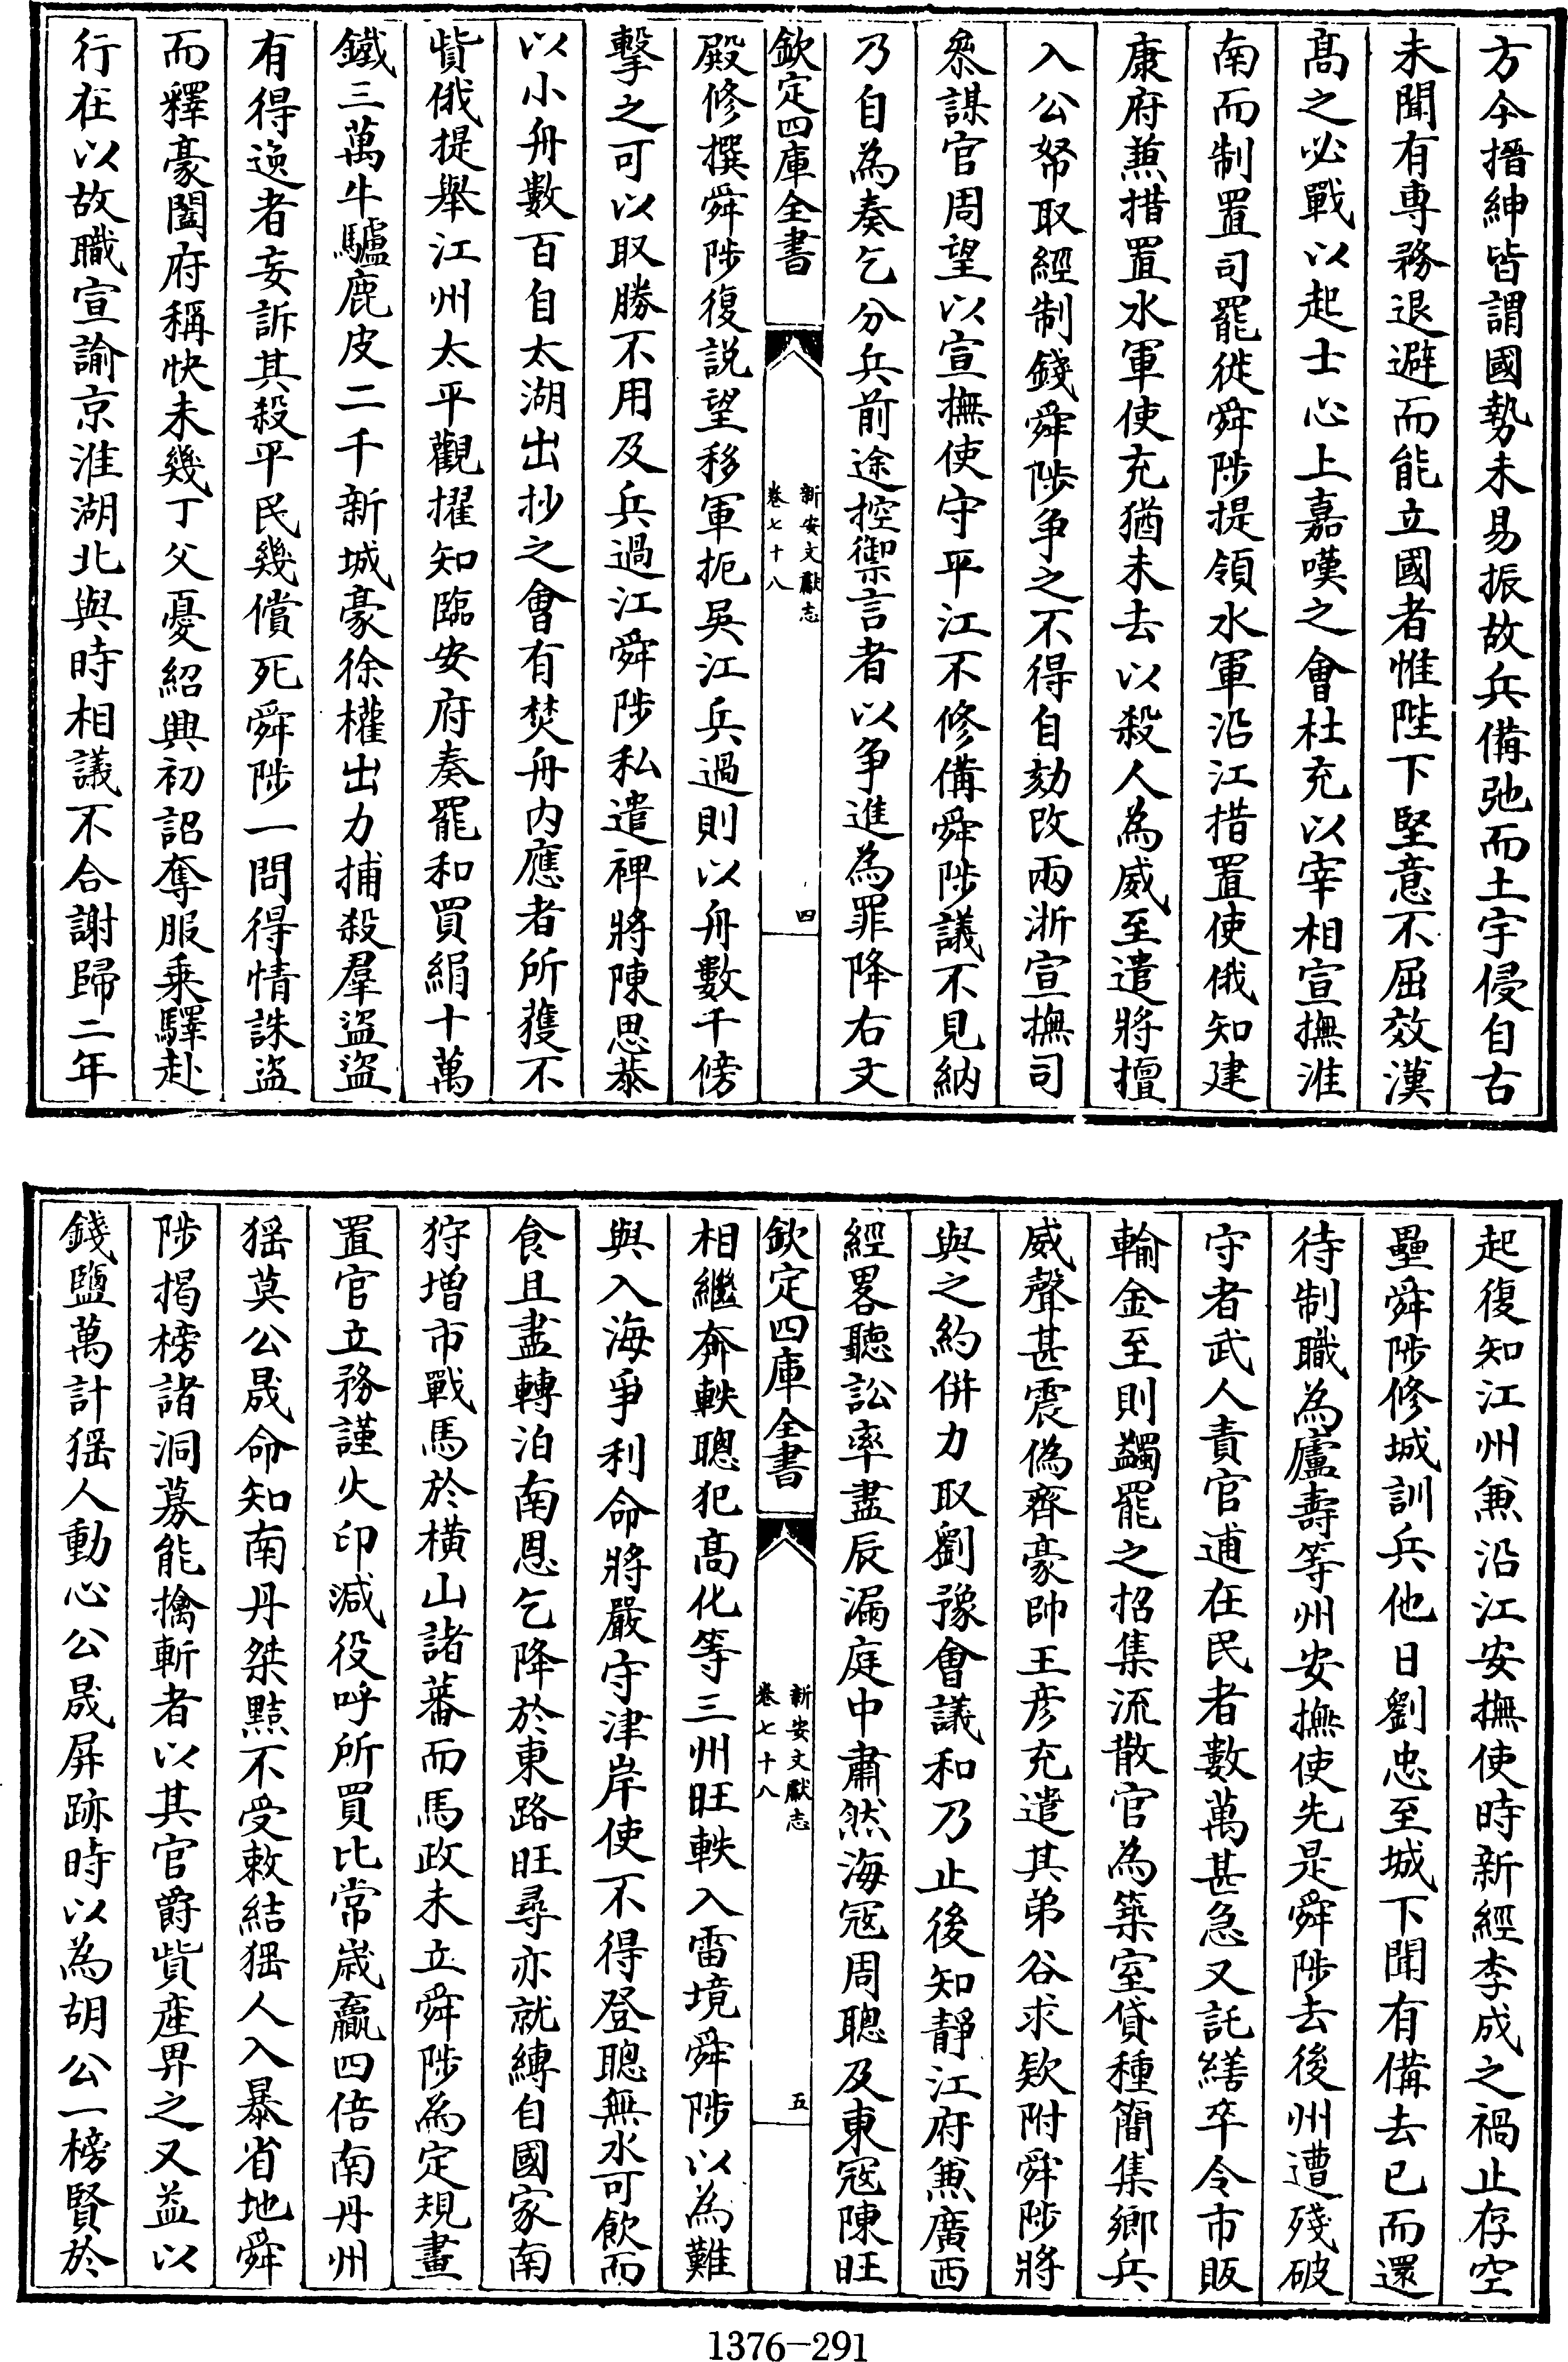 方今搢紳皆謂國勢未易振故兵備弛而土宇侵自古
未聞有専務退避而能立國者惟陛下堅意不屈效漢
髙之必戰以起士心上嘉嘆之會杜充以宰相宣撫淮
南而制置司罷徙舜陟提領水軍沿江措置使俄知建
康府兼措置水軍使充猶未去以殺人為威至遣將擅
入公帑取經制錢舜陟争之不得自劾改兩浙宣撫司
叅謀官周望以宣撫使守平江不修備舜陟議不見納
乃自為奏乞分兵前途控禦言者以争進為罪降右文
欽定四庫全書
新安文獻志
卷七十八
四
殿修撰舜陟復説望移軍扼吳江兵過則以舟數千傍
擊之可以取勝不用及兵過江舜陟私遣裨將陳思恭
以小舟數百自太湖出抄之會有焚舟内應者所獲不
貲俄提舉江州太平觀擢知臨安府奏罷和買絹十萬
鐵三萬牛驢鹿皮二千新城豪徐權出力捕殺羣盜盜
有得逸者妄訴其殺平民幾償死舜陟一問得情誅盜
而釋豪闔府稱快未幾丁父憂紹興初詔奪服乗驛赴
行在以故職宣諭京淮湖北與時相議不合謝歸二年
起復知江州兼沿江安撫使時新經李成之禍止存空
壘舜陟修城訓兵他日劉忠至城下聞有備去已而還
待制職為廬壽等州安撫使先是舜陟去後州遭殘破
守者武人責官逋在民者數萬甚急又託繕卒令市販
輸金至則蠲罷之招集流散官為築室貸種簡集鄉兵
威聲甚震偽齊豪帥王彦充遣其弟谷求欵附舜陟將
與之約併力取劉豫會議和乃止後知靜江府兼廣西
經畧聽訟率盡辰漏庭中肅然海冦周聰及東冦陳旺
欽定四庫全書
新安文獻志
卷七十八
五
相繼奔軼聰犯髙化等三州旺軼入雷境舜陟以為難
與入海爭利命將嚴守津岸使不得登聰無水可飲而
食且盡轉泊南恩乞降於東路旺尋亦就縛自國家南
狩増市戰馬於横山諸蕃而馬政未立舜陟為定規畫
置官立務謹火印減役呼所買比常歲贏四倍南丹州
猺莫公晟命知南丹桀黠不受敕結猺人入暴省地舜
陟揭榜諸洞募能擒斬者以其官爵貲産畀之又益以
錢鹽萬計猺人動心公晟屏跡時以為胡公一榜賢於
1376-291